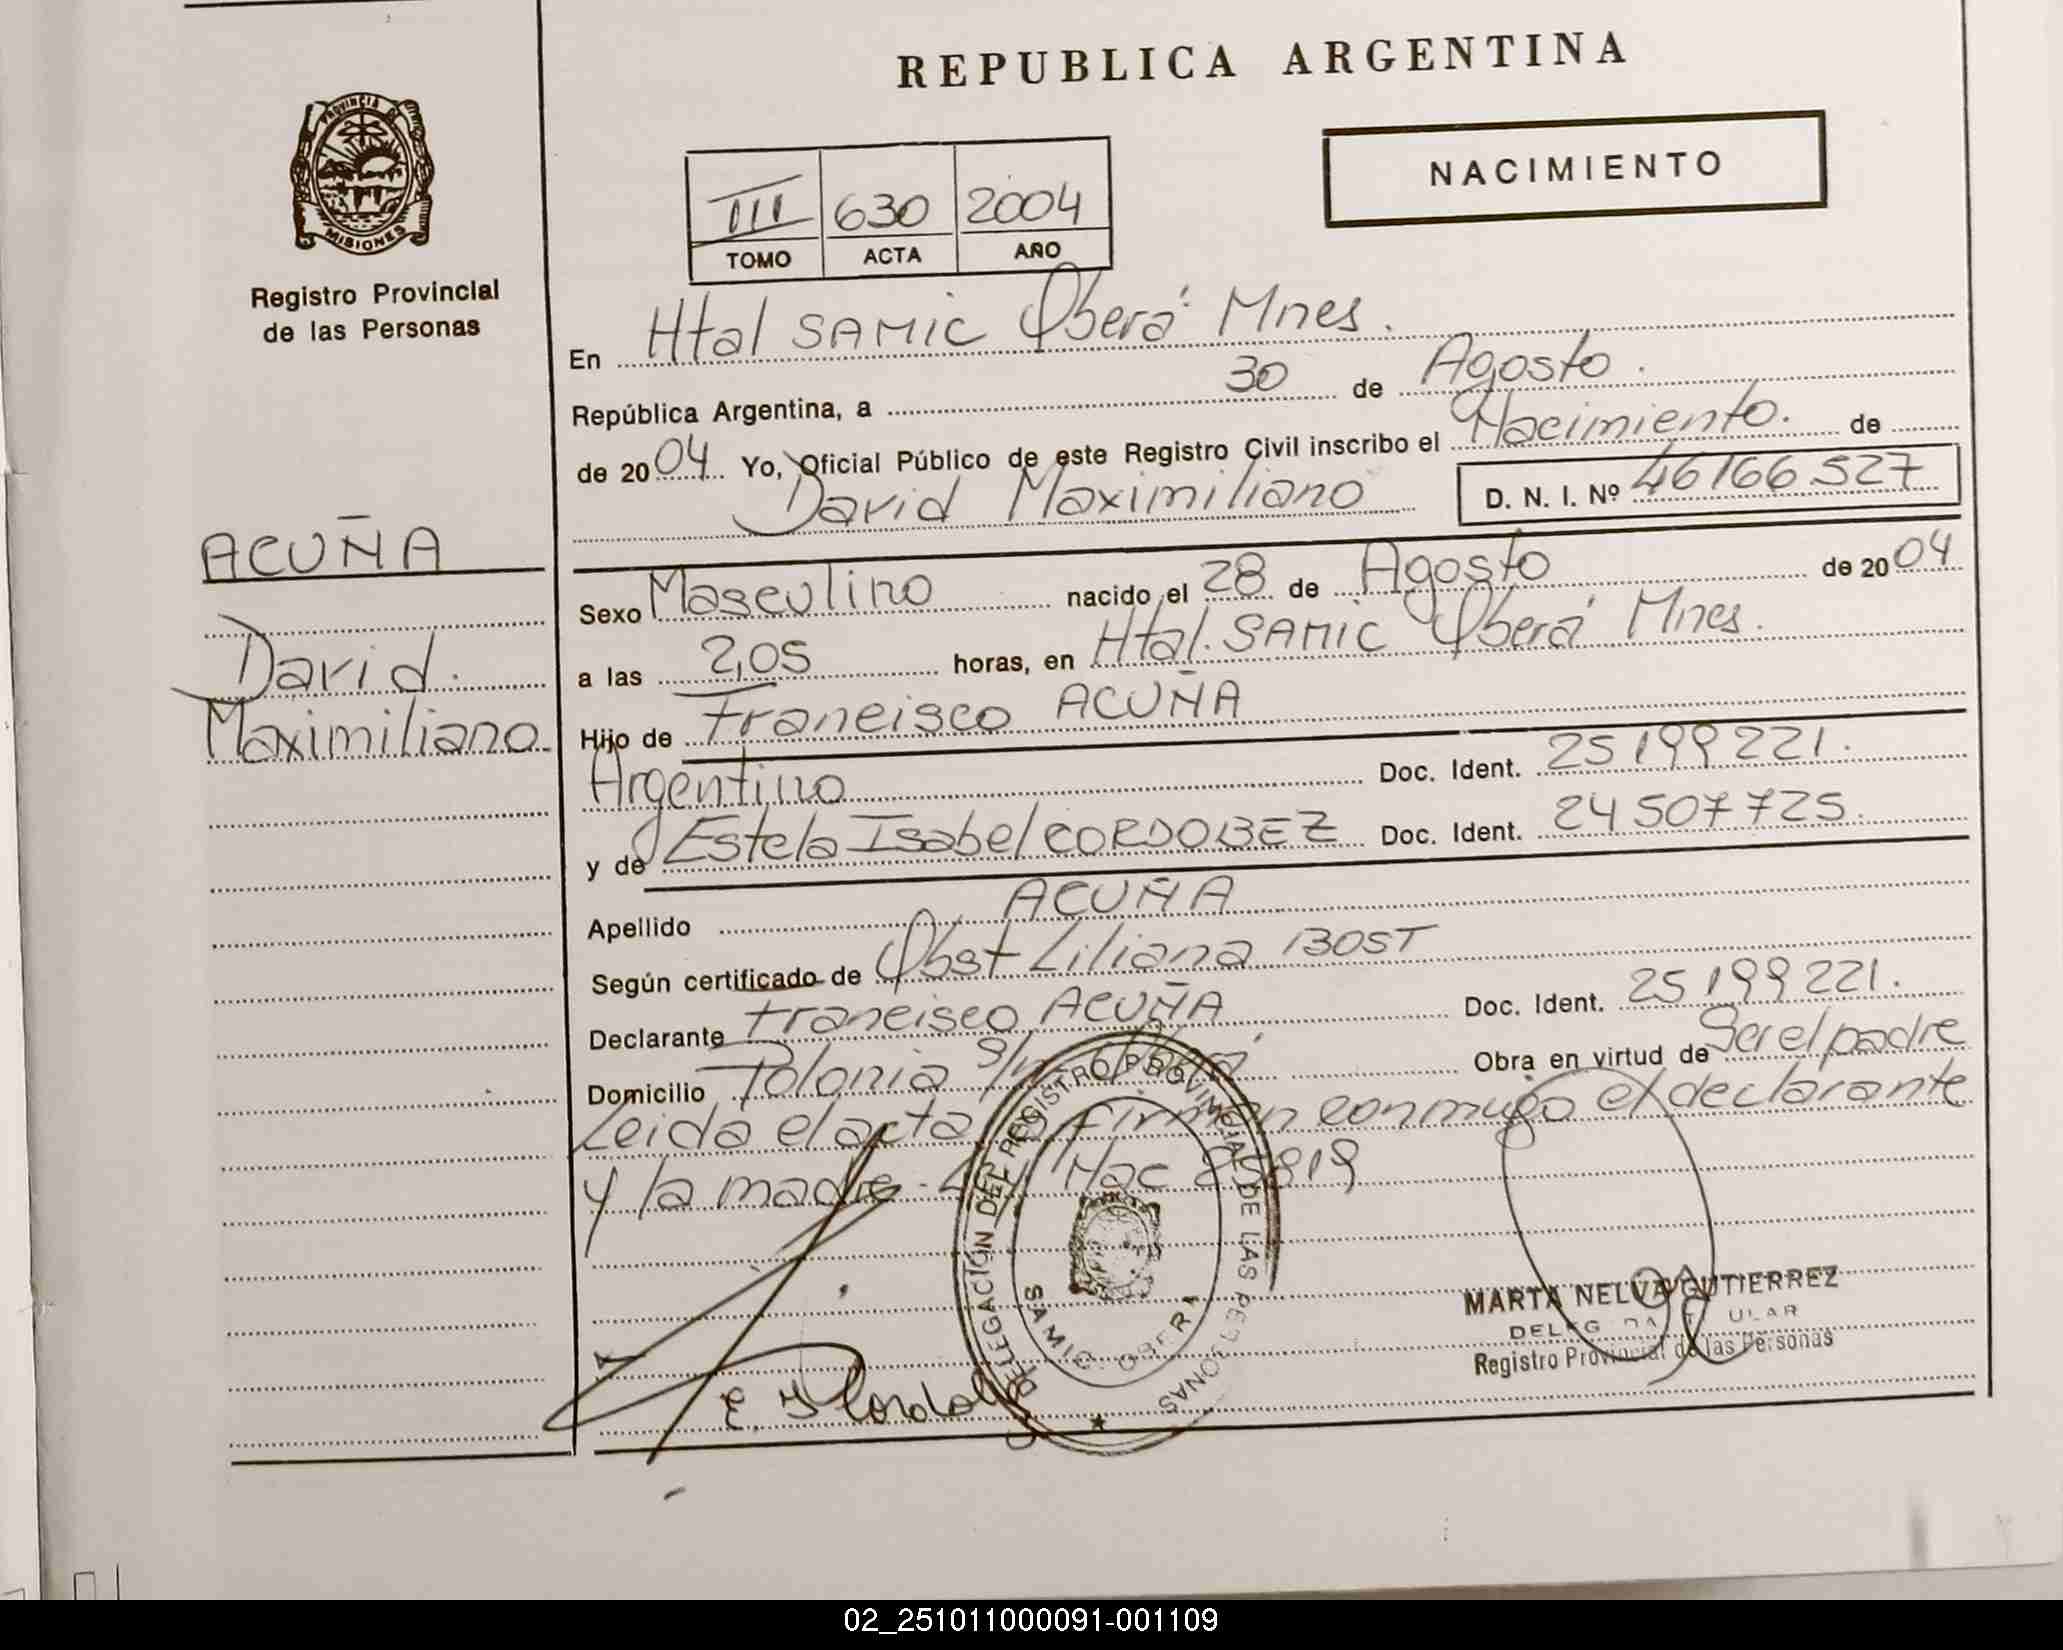 REPUBLICA ARGENTINA
PROVINCIA DE
MISIONES
Registro Provincial
de las Personas
III 630 2004
TOMO ACTA AÑO
NACIMIENTO
En Htal SAMIC Oberá Mnes.
República Argentina, a 30 de Agosto.
de 2004 Yo, Oficial Público de este Registro Civil inscribo el Nacimiento. de
David Maximiliano D. N. I. Nº 46166527
ACUÑA
David
Maximiliano
Sexo Masculino nacido el 28 de Agosto de 2004
a las 2,05 horas, en Htal. SAMIC Oberá Mnes.
Hijo de Francisco ACUÑA
Argentino Doc. Ident. 25199221.
y de Estela Isabel CORDOBEZ Doc. Ident. 24507725.
Apellido ACUÑA
Según certificado de Obst Liliana BOST
Declarante Francisco ACUÑA Doc. Ident. 25199221.
Domicilio Polonia S/n Oberá Obra en virtud de Ser el padre
Leida el acta firman conmigo el declarante
y la madre. Nac 25819
DELEGACIÓN DEL REGISTRO PROVINCIAL DE LAS PERSONAS
SAMIC OBERA
MARTA NELVA GUTIERREZ
Registro Provincial de las Personas
02_251011000091-001109